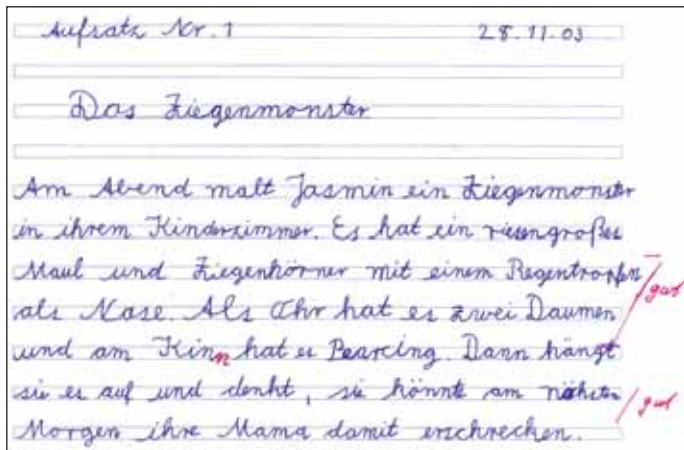 Aufsatz Nr. 1 28.11.03
Das Ziegenmonster
Am Abend malt Jasmin ein Ziegenmonster
in ihrem Kinderzimmer. Es hat ein riesengroßes
Maul und Ziegenhörner mit einem Regentropfen
als Nase. Als Ohr hat es zwei Daumen gut
und am Kinn hat es Pearcing. Dann hängt
sie es auf und denkt, sie könnte am nächsten gut
Morgen ihre Mama damit erschrecken.